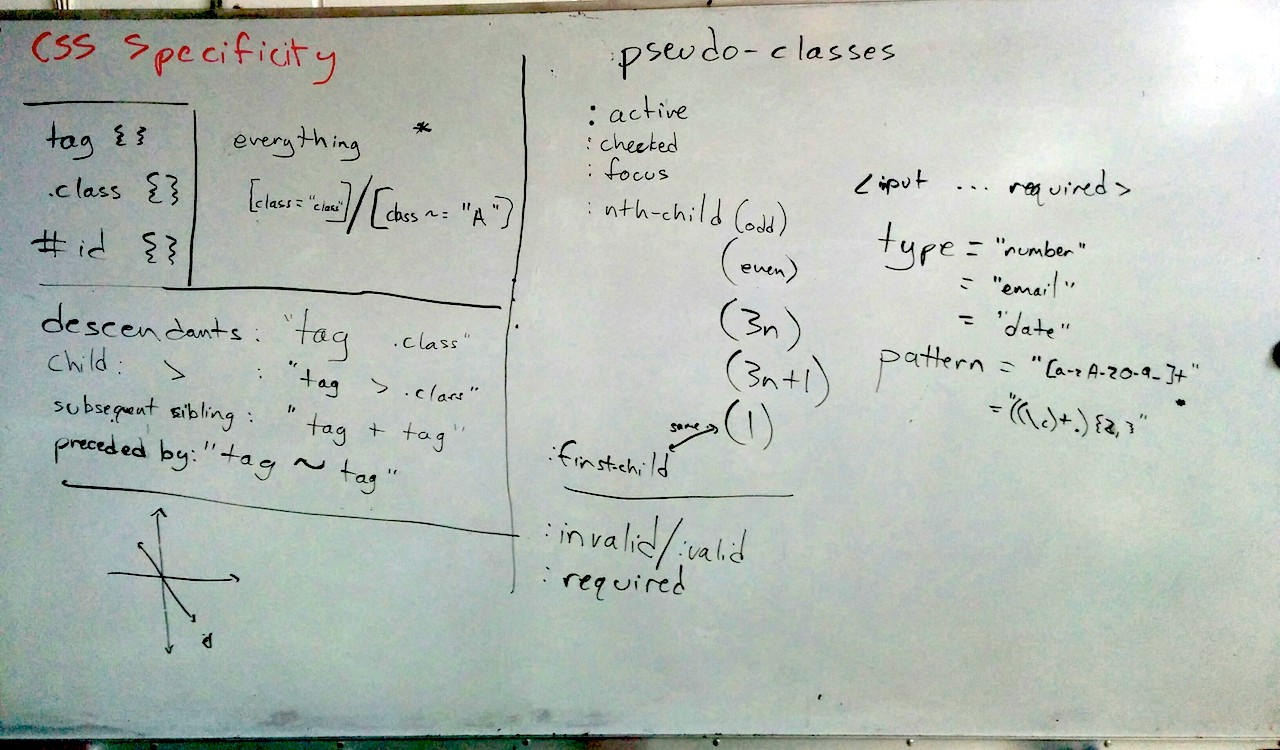 CSS Specificity
tag {}
.class {}
#id {}
everything *
[class="class"]/[class ~= "A"]
descendants: "tag .class"
child: > : "tag > .class"
subsequent sibling: "tag + tag"
preceded by: "tag ~ tag"
pseudo-classes
:active
:checked
:focus
:nth-child (odd)
(even)
(3n)
(3n+1)
same (1)
:first-child
:invalid/:valid
:required
<input ... required>
type = "number"
= "email"
= "date"
pattern = "[a-zA-Z0-9_]+"